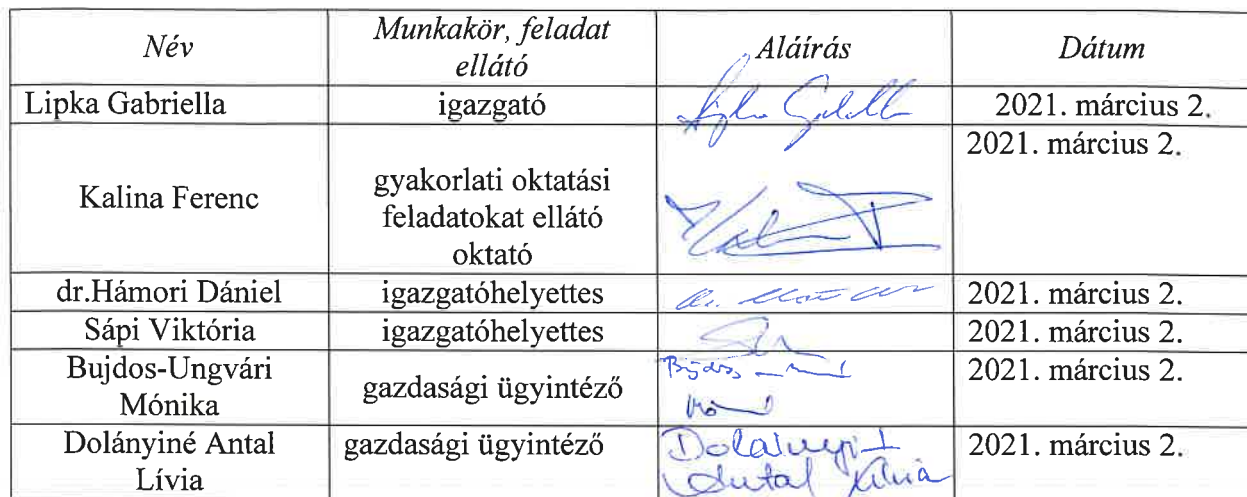 Név
Munkakör, feladat
ellátó
Aláírás
Dátum
Lipka Gabriella
igazgató
2021. március 2.
Kalina Ferenc
gyakorlati oktatási
feladatokat ellátó
oktató
2021. március 2.
dr.Hámori Dániel
igazgatóhelyettes
2021. március 2.
Sápi Viktória
igazgatóhelyettes
2021. március 2.
Bujdos-Ungvári
Mónika
gazdasági ügyintéző
2021. március 2.
Dolányiné Antal
Lívia
gazdasági ügyintéző
Dolányiné
Antal Lívia
2021. március 2.